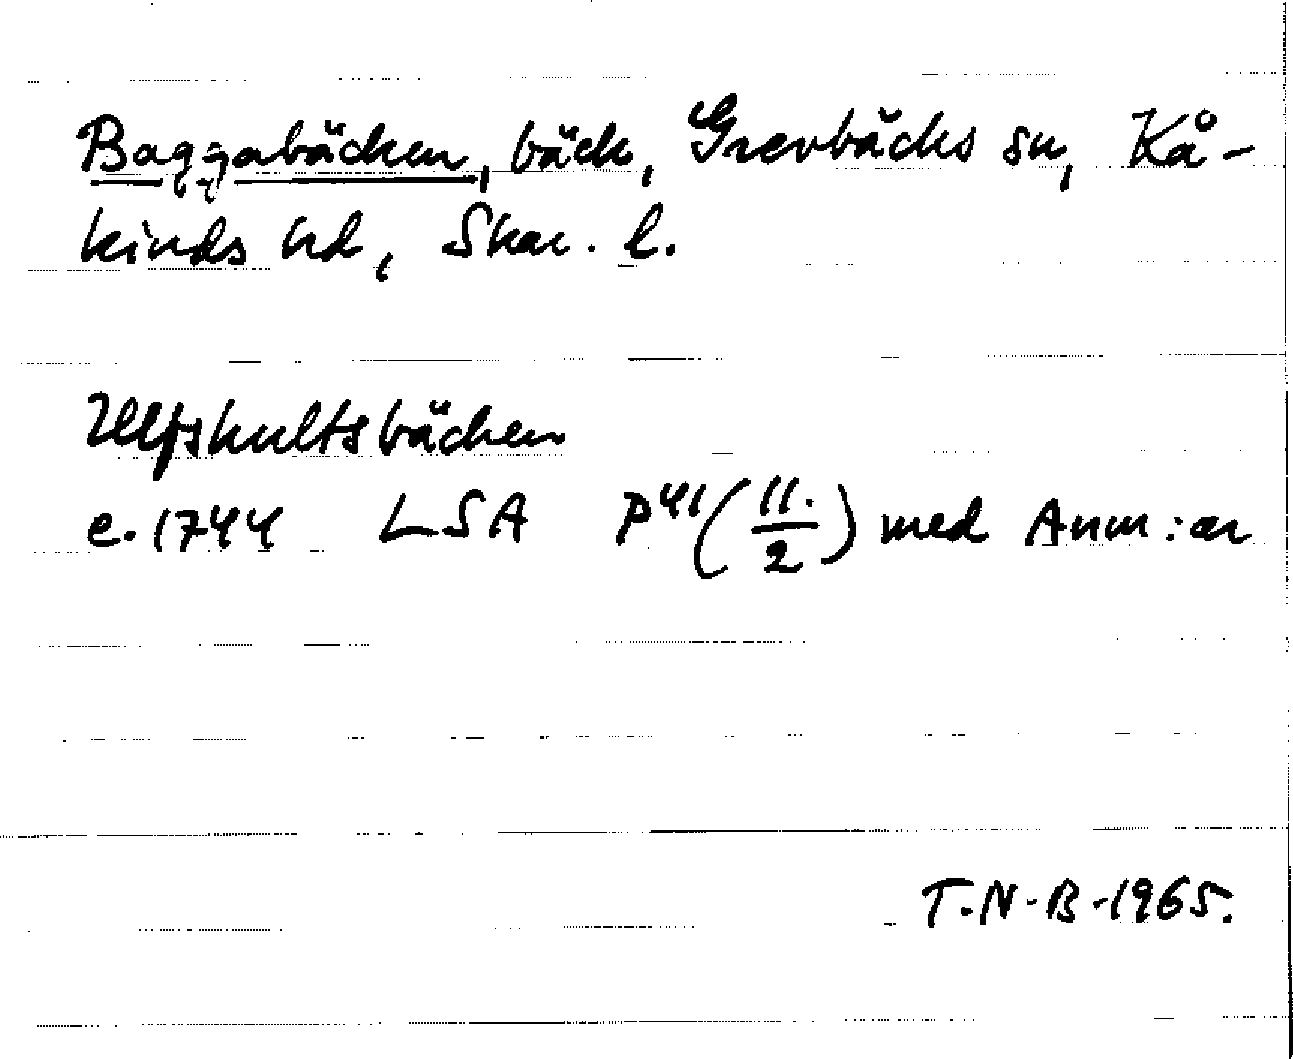 Baggabäcken, bäck, Grevbäcks sn, Kå-
kinds hd, Skar. l.
Ulfshultsbäcken
e. 1744 LSA P41 (11./2) med Anm:ar
T.N.B-1965.